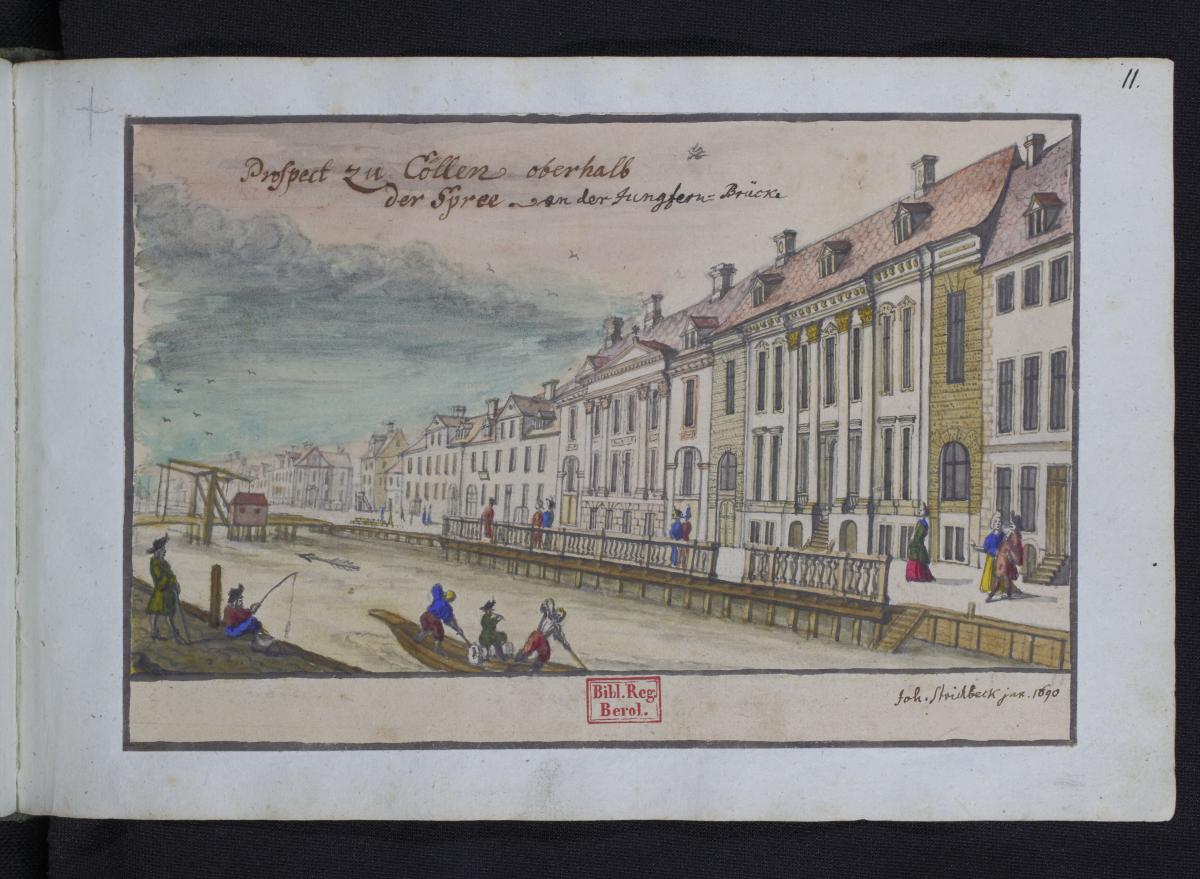 11.
Prospect zu Cöllen oberhalb
der Spree an der Jungfern-Brücke
Bibl. Reg.
Berol.
Joh. Stridbeck jun. 1690